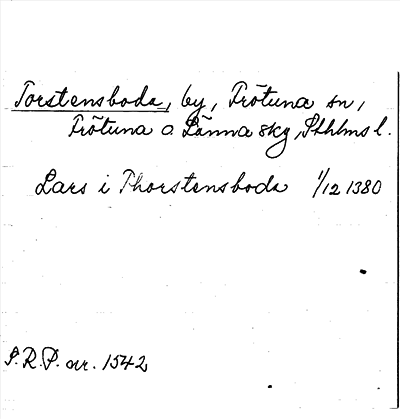 Torstensboda, by, Frötuna sn,
Frötuna o Länna skg, Sthlms l.
Lars i Thorstensboda 1/12 1380
S.R.P. nr. 1542